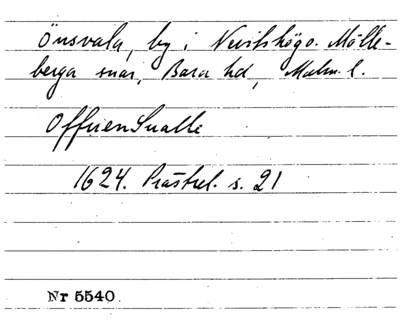 Önsvala, by i Nevishögs. Mölle-
berga snar, Bara hd, Malm. l.
Offuensualle
1624. Prästrel. s. 21
Nr 5540